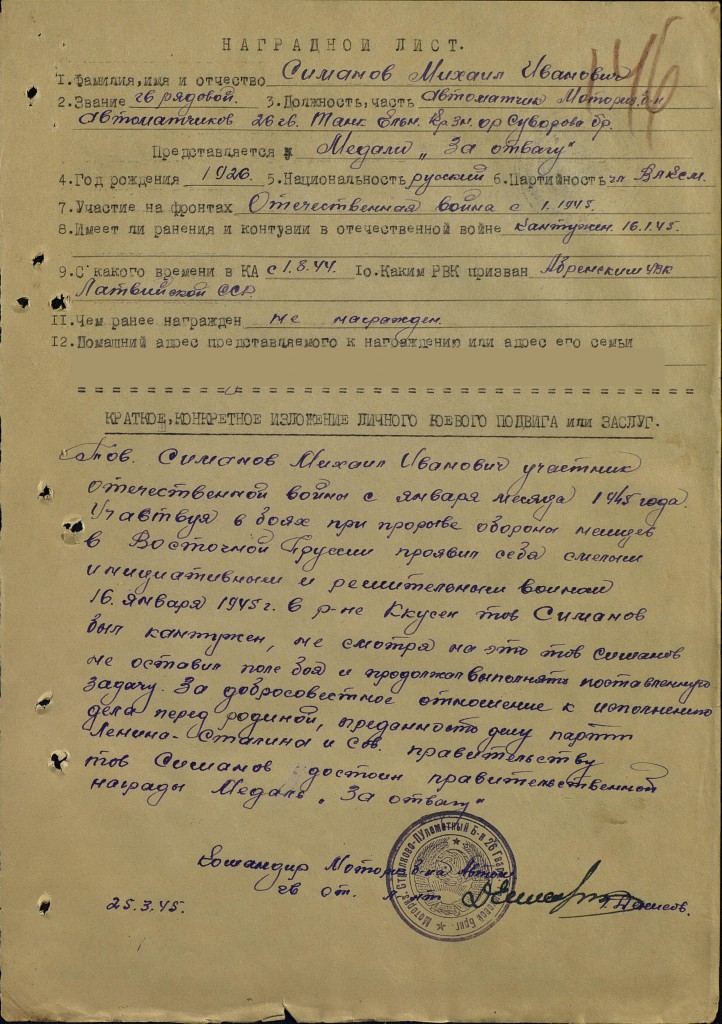 НАГРАДНОЙ ЛИСТ.
1.Фамилия,имя и отчество Симанов Михаил Иванович
2.Звание гв рядовой. 3.Должность,часть автоматчик Моториз. б-н
автоматчиков 26 гв. Танк Ельн. Кр.Зн. ор Суворова бр.
Представляется к Медали „За отвагу"
4.Год рождения 1926 5.Национальность русский 6.Партийность чл ВЛКСМ.
7.Участие на фронтах Отечественная война с 1.1945.
8.Имеет ли ранения и контузии в отечественной войне кантужен. 16.1.45.
9.С какого времени в КА с 1.8.44. 10.Каким РВК призван Абренским УВК
Латвийской ССР.
11.Чем ранее награжден не награжден.
12.Домашний адрес представляемого к награждению или адрес его семьи
КРАТКОЕ,КОНКРЕТНОЕ ИЗЛОЖЕНИЕ ЛИЧНОГО БОЕВОГО ПОДВИГА или ЗАСЛУГ.
Тов. Симанов Михаил Иванович участник
отечественной войны с января месяца 1945 года.
Участвуя в боях при прорыве обороны немцев
в Восточной Пруссии проявил себя смелым
инициативным и решительным воином
16. января 1945г. в р-не Ккусен тов Симанов
был кантужен, не смотря на это тов Симанов
не оставил поле боя и продолжал выполнять поставленную
задачу. За добросовестное отношение к исполнению
дела перед родиной, преданность делу партии
Ленина-Сталина и Сов. правительству
тов Симанов достоин правительственной
награды Медаль „За отвагу"
Командир Моториз б-на Автом
гв ст. л-нт Денисов.
25.3.45.
Моторно-Стрелково-Пулеметный Б-н 26 Гвар